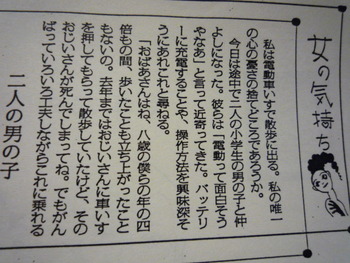 女の気持ち
私は電動車いすで散歩に出る。私の唯一
の心の憂さの捨てどころであろうか。
今日は途中で二人の小学生の男の子と仲
よしになった。彼らは「電動って面白そう
やなあ」と言って近寄ってきた。バッテリ
ーに充電することや、操作方法を興味深そ
うにあれこれと尋ねる。
「おばあさんはね、八歳の僕らの年の四
倍もの間、歩いたことも立ち上がったこと
もないの。去年まではおじいさんに車いす
を押してもらって散歩していたけど、その
おじいさんが死んでしまってね。でもがん
ばっていろいろ工夫しながらこれに乗れる
二人の男の子